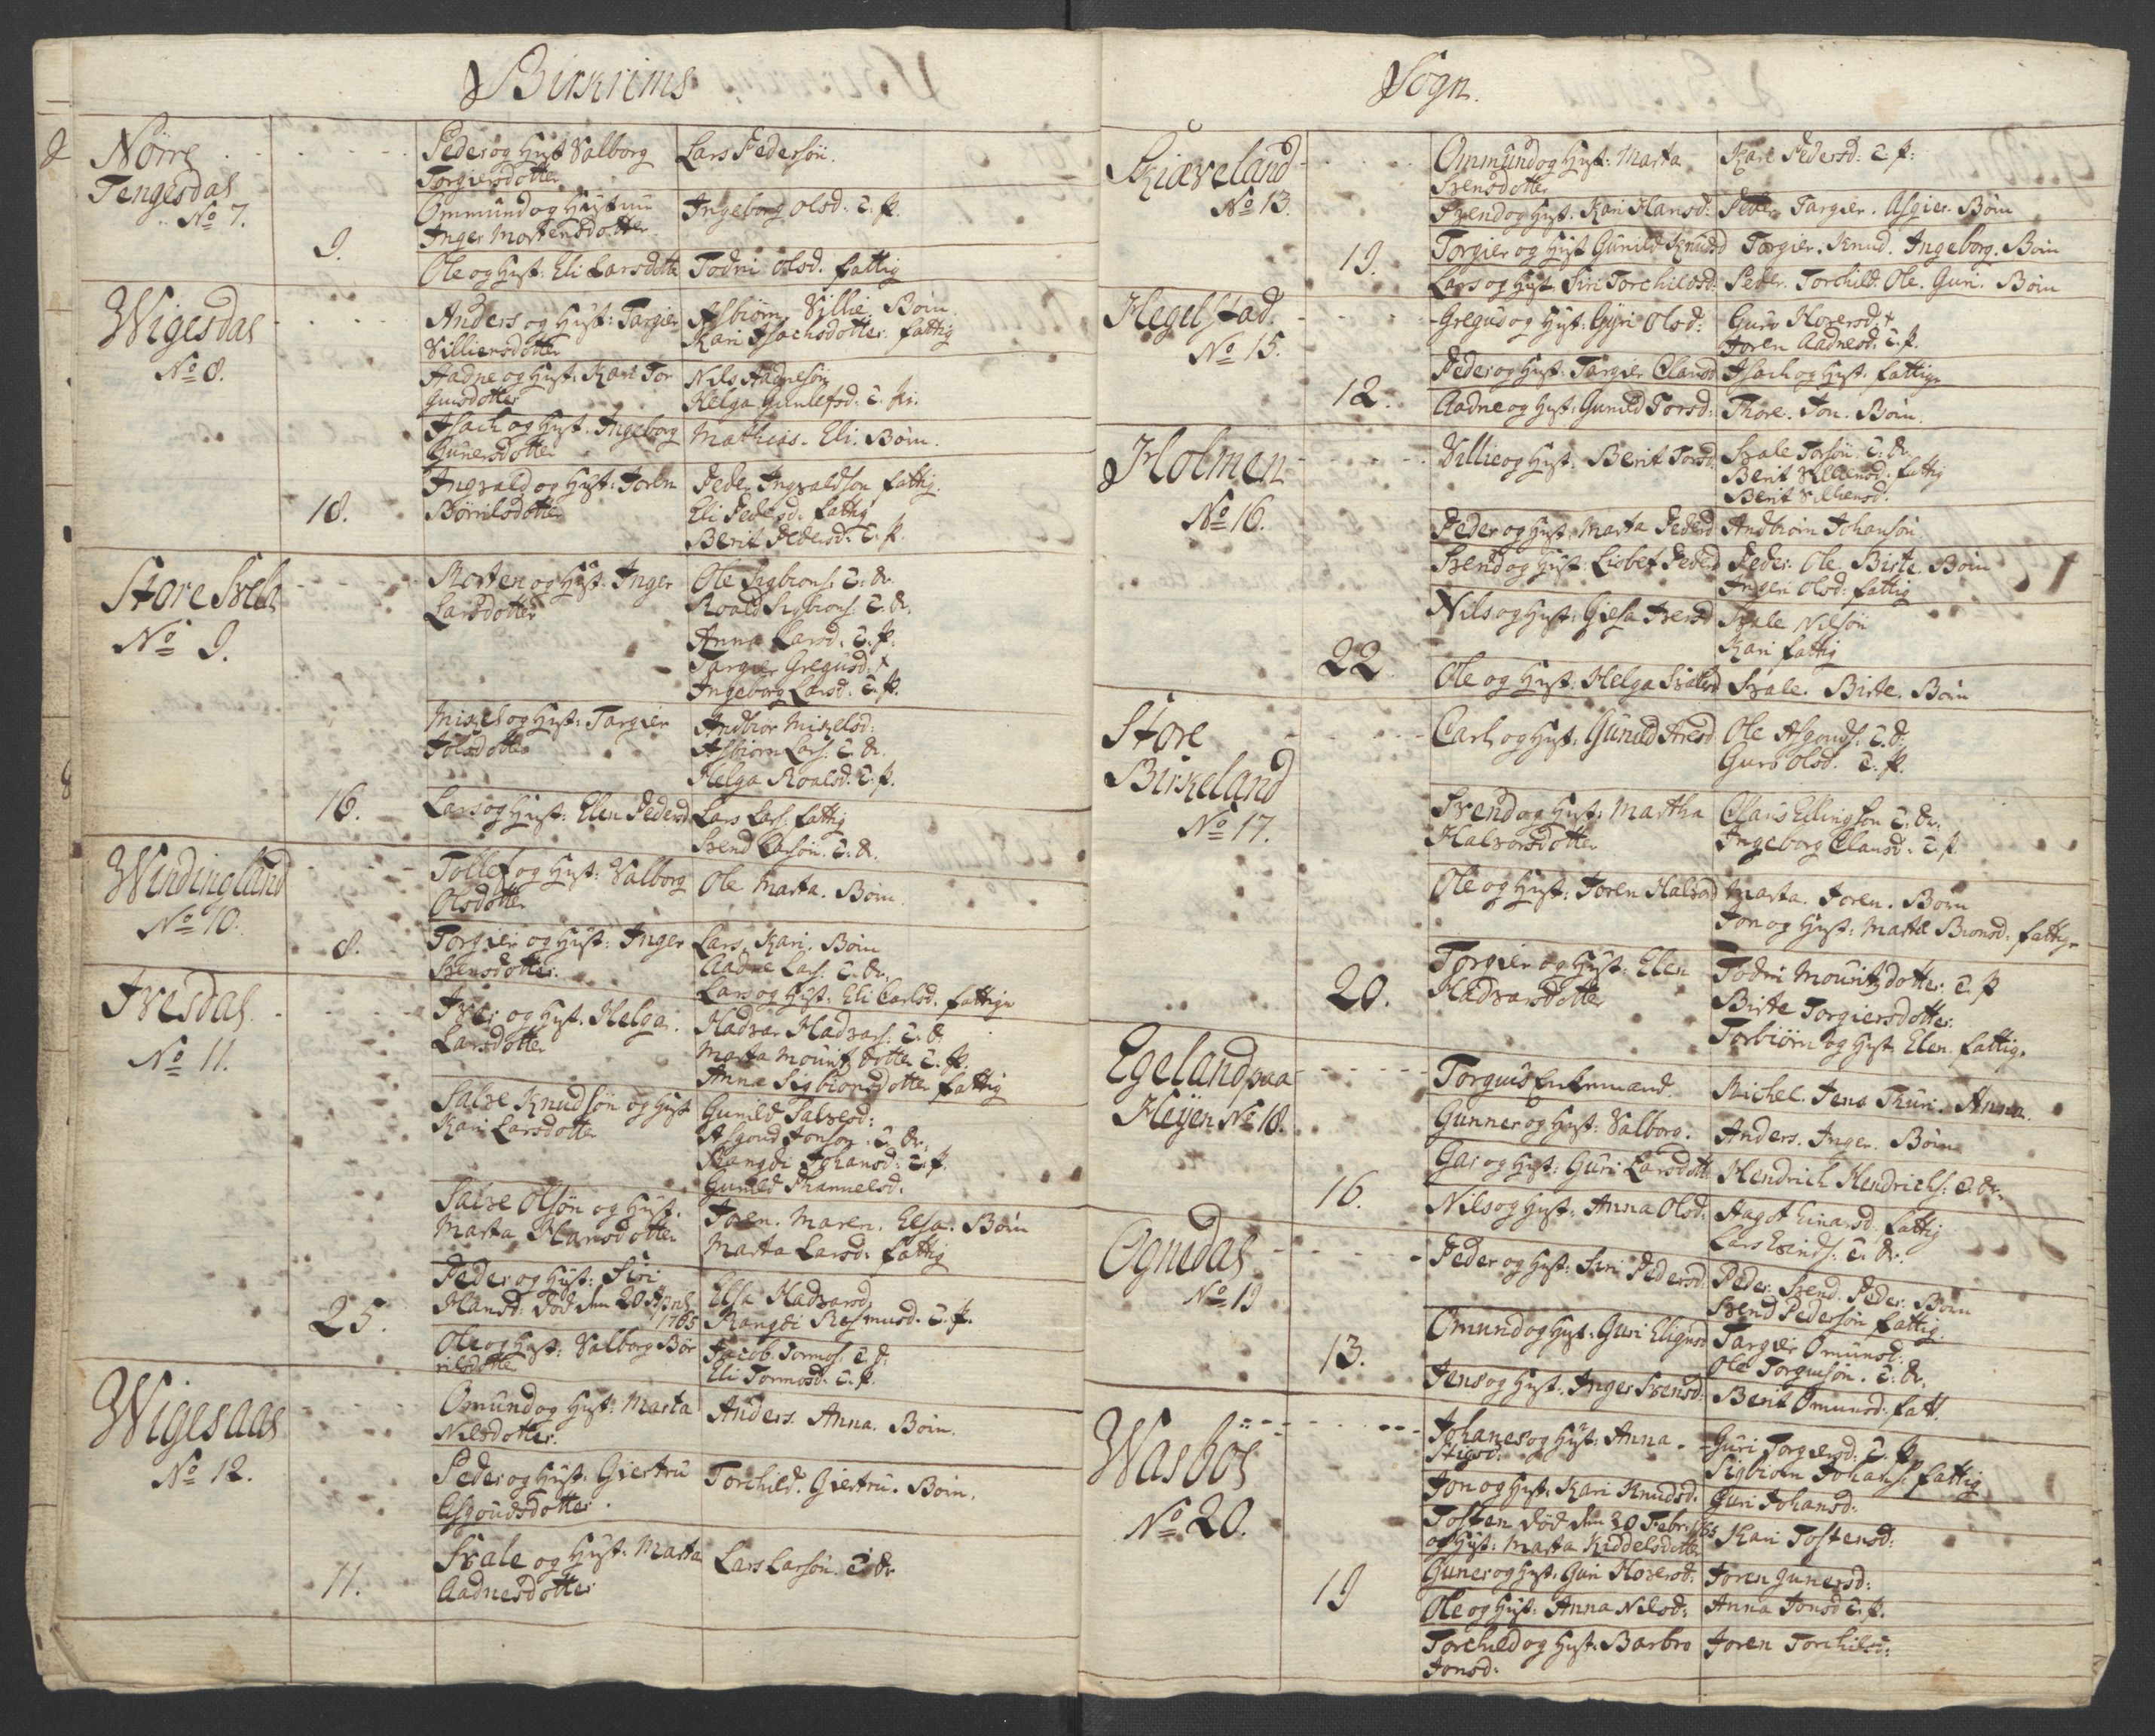 Birkrims
Nörre
Tengesdal
No 7.
9.
Peder og Hust Valborg
Torgiersdotter
Lars Pedersön.
Ommund og Hustru
Inger Mortensdotter
Ingeborg Olsd: T. P.
Ole og Hust: Eli Larsdotte
Todni Olsd. fattig
Wigesdal
No 8.
18.
Anders og Hust: Targier
Villiersdotter
Asbiörn. Villie. Börn.
Kari Isachsdotter. fattig
Aadne og Hust: Kari Tor
gusdotter
Nils Aadnesön
Helga Gunlefsd: T. Pi.
Isach og Hust. Ingeborg
Gunersdotter
Mathias. Eli. Börn.
Ingvald og Hust: Joren
Börrilsdotter
Peder Ingvaldson fattig.
Eli Pedersd: fattig
Berit Pedersd: T. P.
Store Svela
No 9.
16.
Morten og Hust: Inger
Larsdotter
Ole Sigbions: T. Dr.
Roald Sigbions: T. Dr.
Anna Larsd: T. P.
Targier Gregusd: †
Ingeborg Larsd: T. P.
Mikel og Hust: Targier
Jolsdotter
Andbior Mikelsd:
Asbiorn Lars: T. Dr.
Helga Roalsd: T. P.
Lars og Hust: Elen Pedersd
Lars Lars: fattig
Svend Larsön. T. Dr.
Windingland
No 10.
8.
Tollef og Hust: Valborg
Olsdotter
Ole. Marta. Börn.
Torgier og Hust: Inger
Svensdotter.
Lars. Kari. Börn
Aadne Lars: T. Dr.
Lars og Hust: Eli Carlsd. fattige
Ivesdal
No 11.
25.
Iver og Hust. Helga
Larsdotter
Hadvar Hadvars: T. D.
Marta Mouritzdotter T. P.
Anna Sigbiorsdotter fattig
Salve Knudsön og Hust
Kari Larsdotter
Gunild Salvesd:
Asgoud Jonson. T. Dr.
Rangdi Johansd: T. P.
Gunild Thamelsd:
Salve Olsön og Hust.
Marta Hansdotter
Joren. Maren. Elsa. Börn
Marta Larsd: fattig
Peder og Hust: Siri
Hansd: död den 20 April
1765
Elsa Hadvarsd,
Rangdi Rasmusd. T. P.
Ole og Hust: Valborg Bör
rilsdotter
Jacob Tormos: T. D.
Eli Tormosd: T. P.
Wigesaas
No 12.
11.
Omund og Hust: Marta
Nilsdotter.
Anders. Anna. Börn.
Peder og Hust: Giertru
Asgoudsdotter
Torchild. Giertru. Börn.
Svale og Hust: Marta
Aadnesdotter
Lars Larsön. T. Dr.
Sogn.
Skiæveland
No 13.
19.
Ommund og Hust: Marta
Svensdotter
Kari Pedersd: T. P.
Svend og Hust. Kari Hansd.
Peder. Targier. Asgier. Börn
Torgier og Hust Gunild Knudsd
Torgier. Knud. Ingeborg. Börn
Lars og Hust Siri Torchildsd.
Peder. Torchild. Ole. Guri. Börn
Hegelstad
No 15.
12.
Gregus og Hust: Gyri Olsd:
Guro Hoversd †
Joren Aadnesd: T. P.
Peder og Hust: Targier Clausd
Isach og Hust. fattige
Aadne og Hust: Gunild Torsd:
Thore. Jon. Börn.
Holmen
No 16.
22
Villie og Hust: Berit Torsd.
Svale Torsön. T. Dr.
Berit Villiensd: fattig
Berit Villiensd.
Peder og Hust: Marta Pedersd
Andbiörn Johansön
Svend og Hust: Lisbet Pedersd
Peder. Ole. Birte. Börn
Ingeri Olsd: fattig
Nils og Hust: Giesa Iversd
Svale Nilsön
Kari fattig
Ole og Hust: Helga Svalesd
Svale. Birte. Börn
Store
Birkeland
No 17.
20.
Carl og Hust: Gunild Aresd
Ole Asgouds: T. D.
Guro Olsd. T. P.
Svend og Hust: Martha
Halvorsdotter
Claus Ellingson T. Dr.
Ingeborg Clausd: T. P.
Ole og Hust: Joren Halvorsd
Marta. Joren. Börn
Jon og Hust: Marta Bionsd: fattige
Torgier og Hust: Elen
Hadvarsdotter
Todni Mouritzdotter. T. P
Birte Torgiersdotter.
Torbiörn og Hust Elen. fattig.
Egeland paa
Heyen No 18.
16.
Torguis Enkemand.
Michel. Jens. Thuri. Anna.
Gunner og Hust: Valborg.
Anders. Inger. Börn
Gar og Hust: Guri Larsdott
Hendrich Hendrichs: T. Dr.
Nils og Hust: Anna Olsd.
Aagot Einarsd. fattig
Lars Evinds: T. Dr.
Ognedal
No 19
13.
Peder og Hust: Siri Pedersd
Peder. Svend. Peder. Börn
Svend Pedersön fattig.
Omund og Hust: Guri Eligusd
Targier Omunsd:
Ole Torguisön. T. Dr.
Jens og Hust: Inger Svensd.
Berit Omunsd: fatt.
Wasböe
No 20.
19
Johanes og Hust: Anna
Stigsd.
Guri Torgiersd: T. P.
Sigbiorn Johans: fattig
Jon og Hust. Kari Knudsd.
Guri Johansd:
Tosten död den 20 Febr: 1765
og Hust: Marta Kiddelsdotter
Kari Tostensd:
Guner og Hust. Guri Hoversd.
Joren Gunersd:
Ole og Hust: Anna Nilsd:
Anna Jonsd T. P.
Torchild og Hust: Barbro
Jonsd:
Joren Torchilsd: